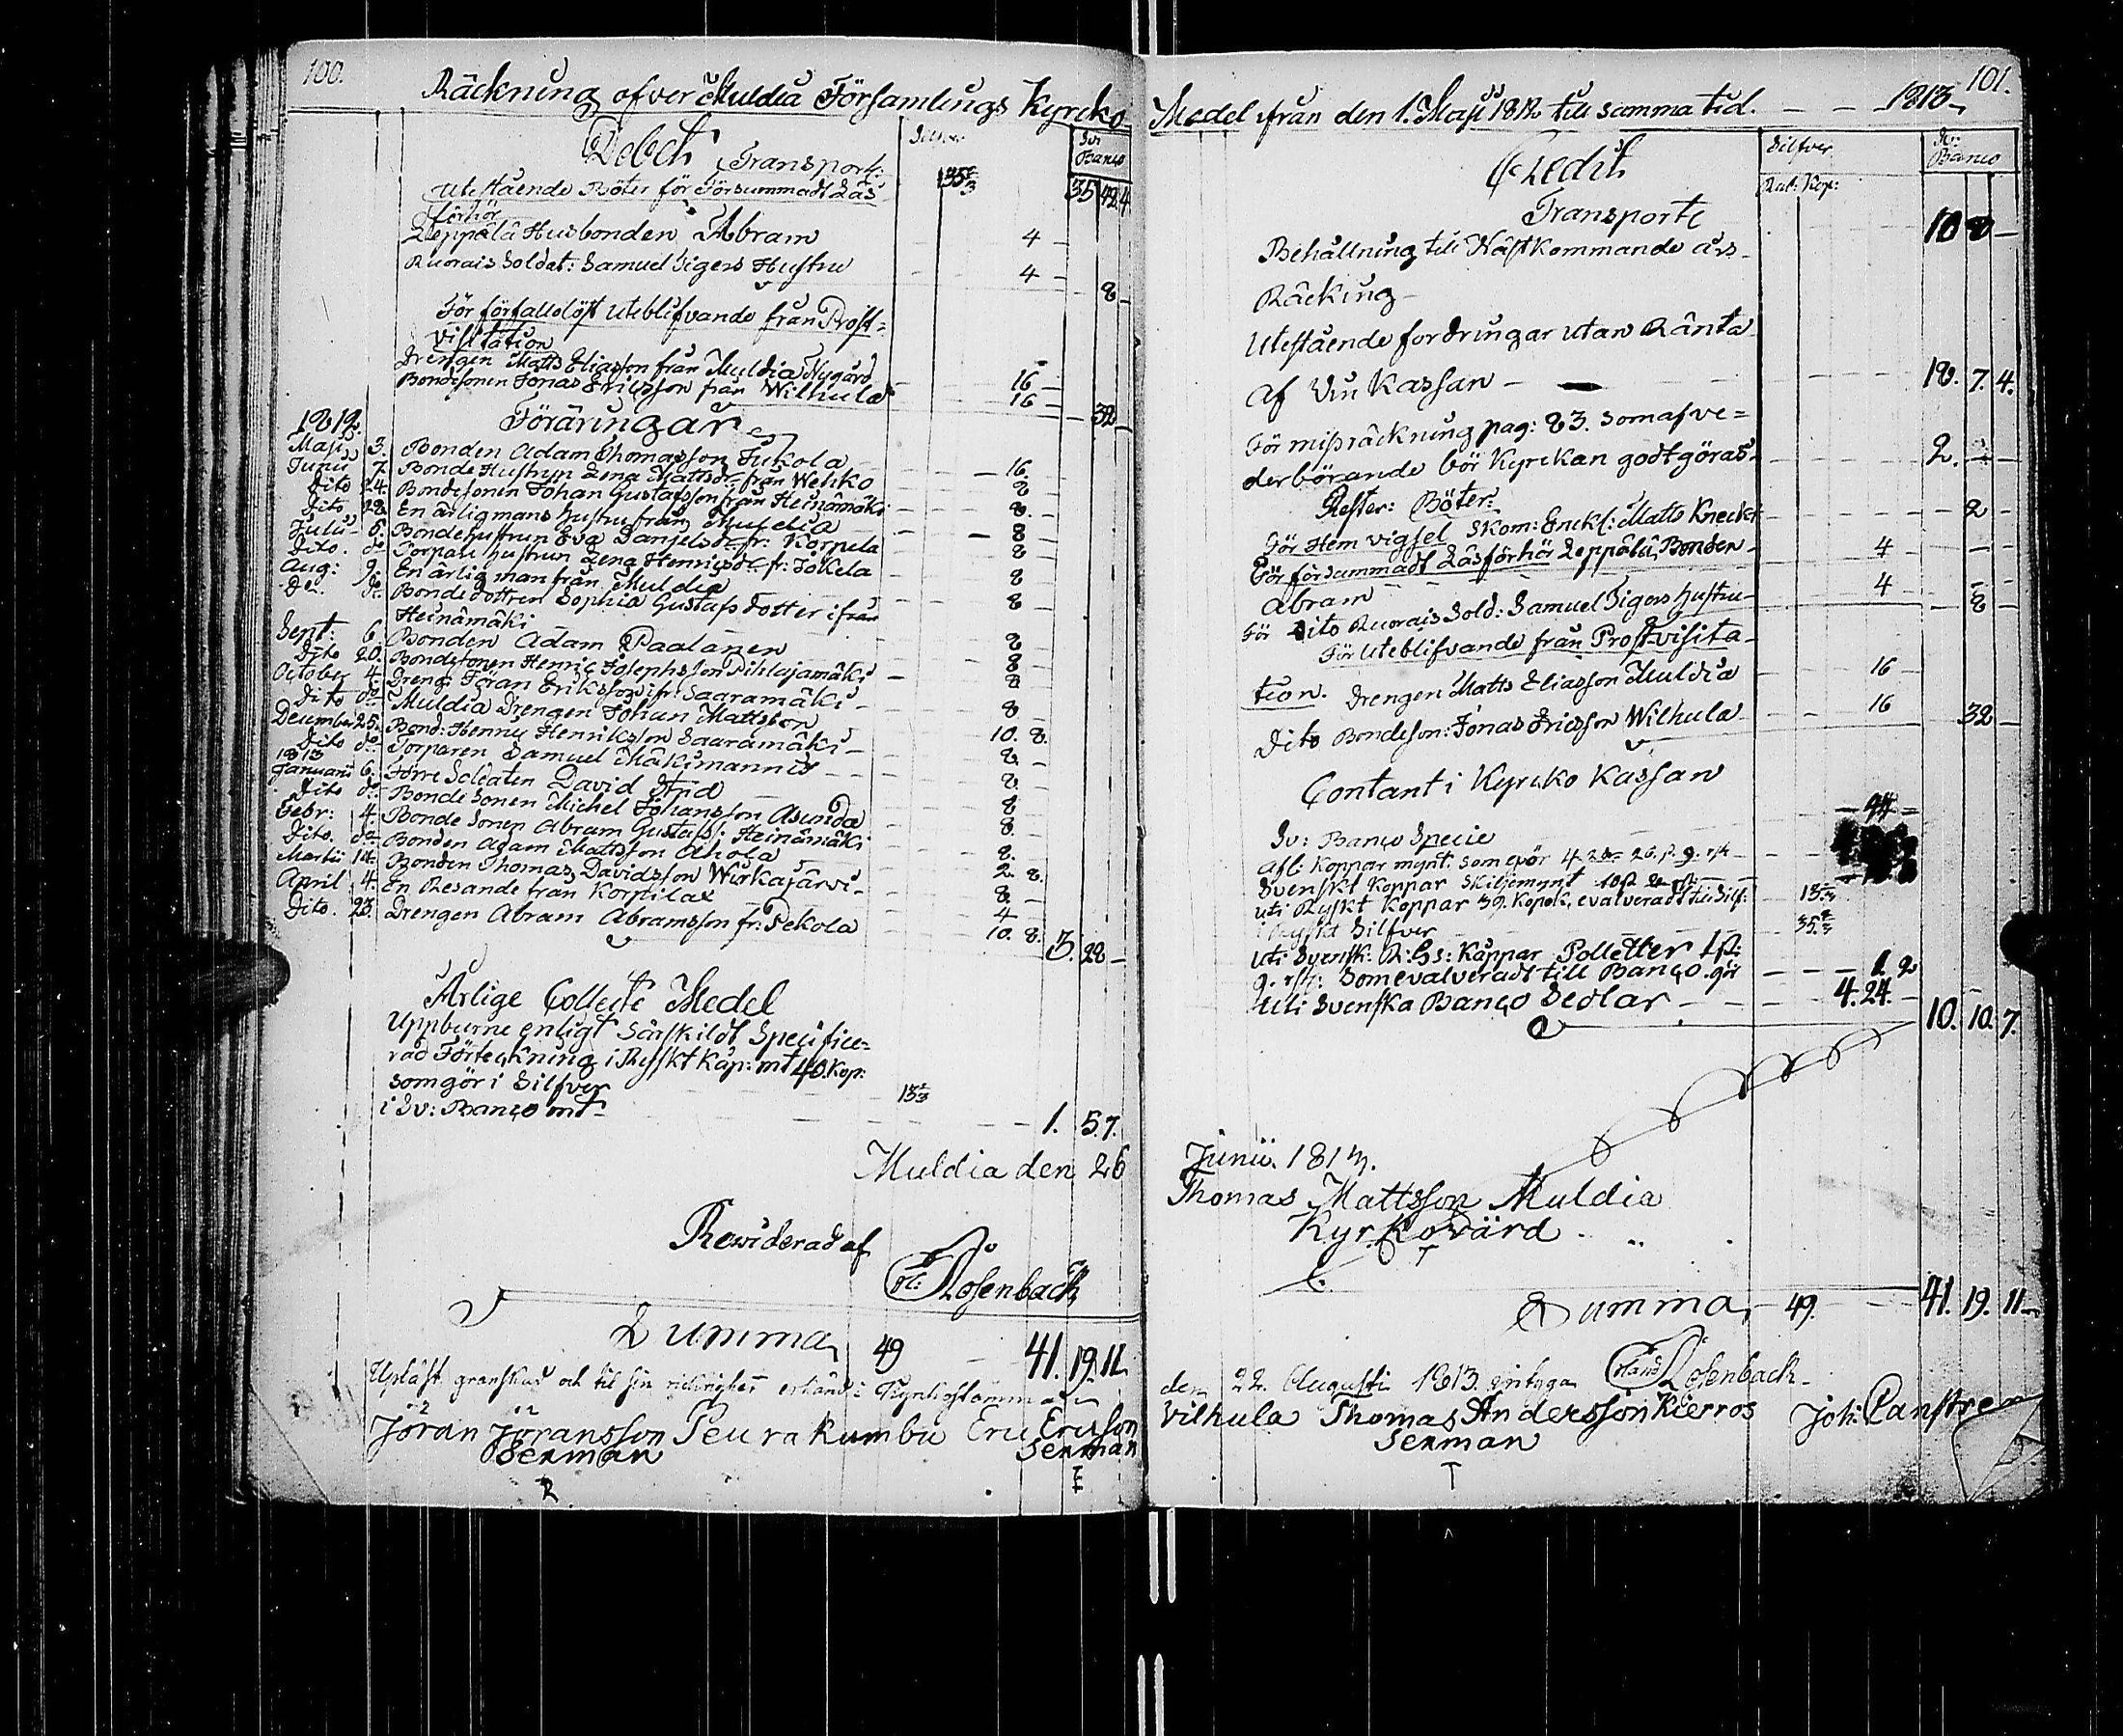 100.
Räckning öfver Muldia Församlings Kyrcko
Debet Transport:
Silfver
Sv: Banco
Utestående Böter för Försummadt Läs
35 42. 4
förhör
Leppälä Husbonden Abram 4 -
Ruorais Soldat: Samuel Sigers Hustru 4 -
8 -
För förfallolöst Uteblifvande från Prost-
visitation
Drengen Matts Eliasson från Muldia Nygård 16 -
Bondesonen Jonas Ericsson från Wilhula 16 -
32
1812. Föräringar
Maji 3. Bonden Adam Thomasson Jukola 16.
Junii 7. Bonde Hustrun Lena Mattsdr från Wehko 8 -
Dito 24. Bondesonen Johan Gustafsson från Heinämäki 8. -
Dito 28. En ärlig mans hustru från Muldia 8 -
Julii 5. Bondehustrun Eva Danjelsdr fr: Korpela 8 -
Dito. do Torpare hustrun Lena Henricsdr fr: Jokela 8
Aug: 9. En ärlig man från Muldia 8 -
Do. do. Bondedottren Sophia Gustafsdotter ifrån
Heinämäki
Sept: 6. Bonden Adam Paalanen 8 -
Dito 20. Bondesonen Henric Josephsson Pihlajamäki 8 -
October 4. Dreng: Jöran Eriksson ifr: Saaramäki 8
Dito do Muldia Drengen Johan Mattsson 8 -
December 25. Bond: Henric Henriksson Saaramäki 10. 8.
Dito do. Torparen Samuel Mäkimannis 8 -
1813
Januarii 6. Förre Soldaten David And 8. -
Dito do Bonde Sonen Michel Johansson Asunda 8
Febr: 4. Bonde Sonen Abram Gustafss: Heinämäki 8. -
Dito. do. Bonden Adam Mattsson Ahola 8.
Martii 14. Bonden Thomas Davidsson Wurkajärvi 2. 8.
April 4. En Resande från Korpilax 8. -
Dito. 23. Drengen Abram Abramsson fr: Pekola 4
10. 8. 3. 28 -
Årlige Collecte Medel
Uppburne enligt Särskildt Specifice-
rad Förteckning i Ryskt Kop: mt 40. Kop:
som gör i Silfver 13⅓
i Sv: Banco mt 1. 5. 7.
Muldia den 26
Reviderad af
Rosenback
Summa 49 41. 19. 11.
Upläst, granskad och til sin richtighet erkänd i Kyrkiostämman
Jöran Jöransson Peurakumbu Eric Ericsson
Sexman Sexman
101.
Medel ifrån den 1. Maji 1812 till samma tid. 1813
Credit
Silfver
Sv: Banco
Rub: Kop:
Transporte 10 8 -
Behållning till Nästkommande års
Räcking
Utestående fordringar utan Ränta
af Vin Kassan 18. 7. 4.
För missräckning pag: 83. som af ve-
derbörande bör Kyrckan godtgöras 2. -
Rester: Böter:
För Hem vigsel Skom: Enckl: Matts Kneckt 2 -
För försummadt Läsförhör Leppälä Bonden
Abram 4 -
För Dito Ruorais Sold: Samuel Sigers hustru 4 - 8 -
För Uteblifvande från Prostvisita-
tion. Drengen Matts Eliasson Muldia 16 -
Dito Bondeson: Jonas Ericsson Wilhula 16 32 -
Contant i Kyrcko Kassan
Sv: Banco Specie
Svenskt Koppar Skiljemynt
uti Ryskt Koppar 39. Kopek, evalveradt till Silf: 13⅓
i Ryskt Silfver 35⅔
uti Svensk: R:Gs: Kåppar Polletter
som evalveradt till Banco gör
Uti Svenska Banco Sedlar 4. 24. -
10. 10. 7.
Junii. 1813.
Thomas Mattsson Muldia
Kyrkovärd
Summa 49. 41. 19. 11
den 22. Augusti 1813. intyga Rosenback
Vilhula Thomas Andersson Kierros
Sexman